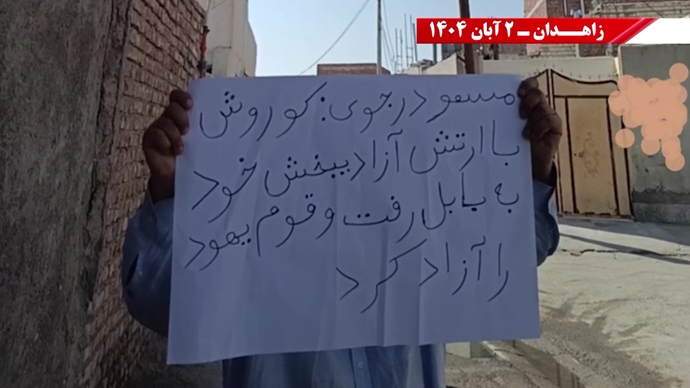 زاهدان ـ ۲ آبان ۱۴۰۴
مسعود رجوی: کوروش
با ارتش آزادیبخش خود
به بابل رفت و قوم یهود
را آزاد کرد